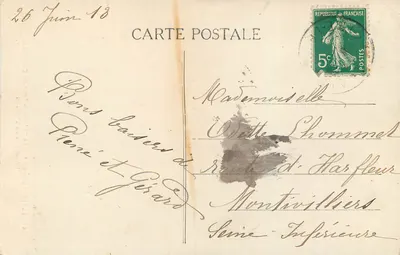 26 Juin 13
CARTE POSTALE
REPUBLIQUE FRANÇAISE
5c
POSTES
Bons baisers de
René et Gérard
Mademoiselle
Odette Lhommet
route d'Harfleur
Montivilliers
Seine-Inférieure